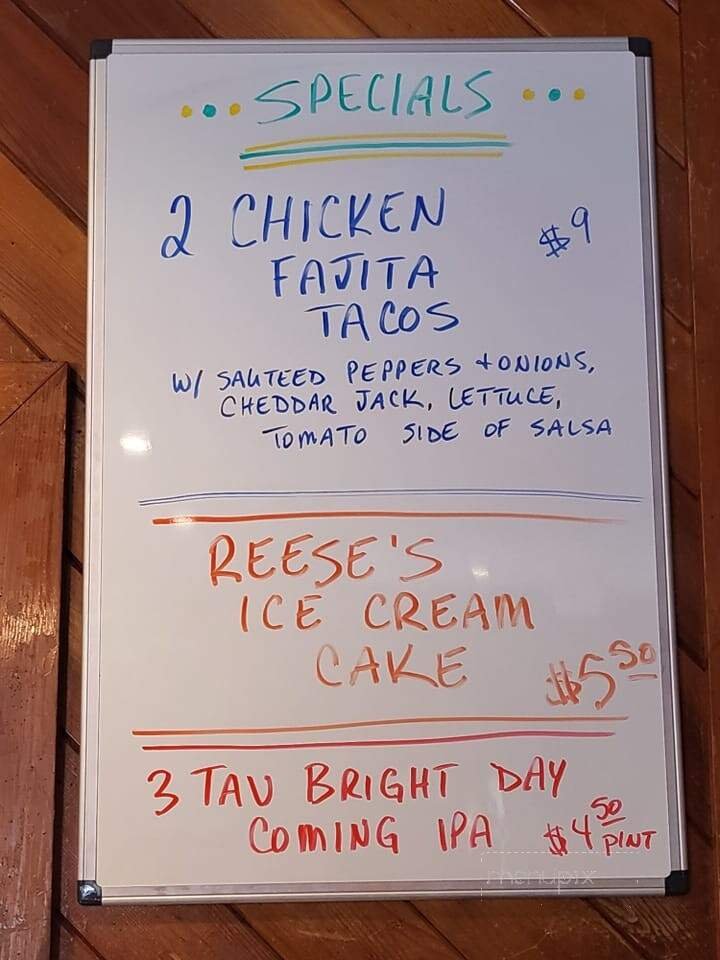 SPECIALS
2 CHICKEN $9
FAJITA
TACOS
W/ SAUTEED PEPPERS + ONIONS,
CHEDDAR JACK, LETTUCE,
TOMATO SIDE OF SALSA
REESE'S
ICE CREAM
CAKE $5 50
3 TAV BRIGHT DAY
COMING IPA $4 50 PINT
menupix